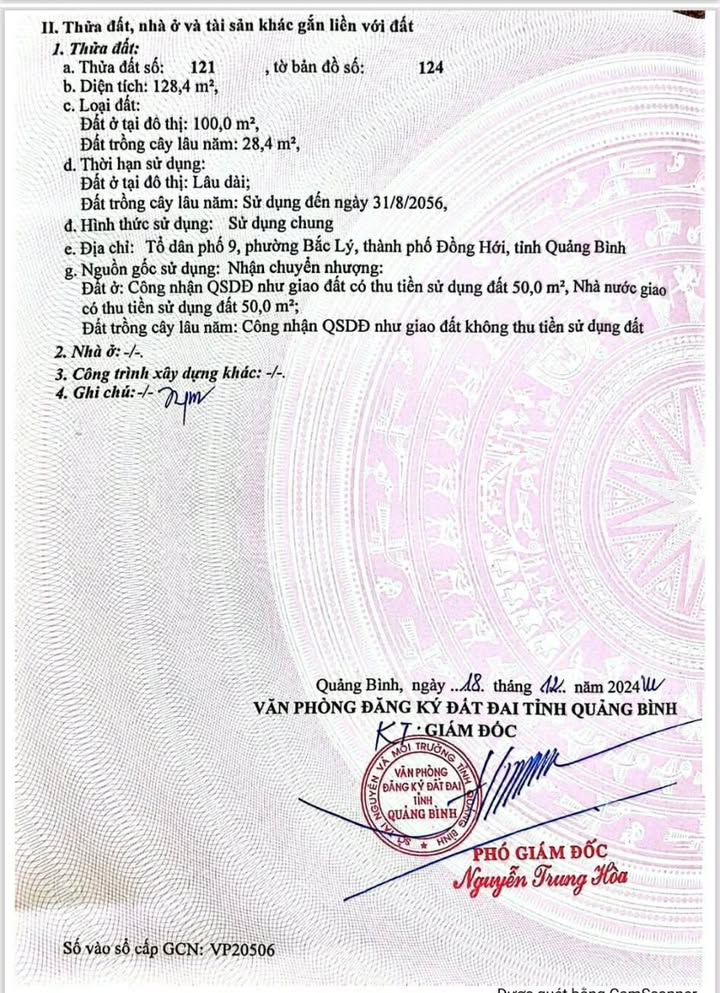 II. Thửa đất, nhà ở và tài sản khác gắn liền với đất
1. Thửa đất:
a. Thửa đất số: 121 , tờ bản đồ số: 124
b. Diện tích: 128,4 m²,
c. Loại đất:
Đất ở tại đô thị: 100,0 m²,
Đất trồng cây lâu năm: 28,4 m²,
d. Thời hạn sử dụng:
Đất ở tại đô thị: Lâu dài;
Đất trồng cây lâu năm: Sử dụng đến ngày 31/8/2056,
đ. Hình thức sử dụng: Sử dụng chung
e. Địa chỉ: Tổ dân phố 9, phường Bắc Lý, thành phố Đồng Hới, tỉnh Quảng Bình
g. Nguồn gốc sử dụng: Nhận chuyển nhượng:
Đất ở: Công nhận QSDĐ như giao đất có thu tiền sử dụng đất 50,0 m², Nhà nước giao
có thu tiền sử dụng đất 50,0 m²;
Đất trồng cây lâu năm: Công nhận QSDĐ như giao đất không thu tiền sử dụng đất
2. Nhà ở: -/-.
3. Công trình xây dựng khác: -/-.
4. Ghi chú: -/-
Quảng Bình, ngày ..18. tháng .12.. năm 2024
VĂN PHÒNG ĐĂNG KÝ ĐẤT ĐAI TỈNH QUẢNG BÌNH
KT. GIÁM ĐỐC
SỞ TÀI NGUYÊN VÀ MÔI TRƯỜNG TỈNH QUẢNG BÌNH
VĂN PHÒNG
ĐĂNG KÝ ĐẤT ĐAI
TỈNH
QUẢNG BÌNH
PHÓ GIÁM ĐỐC
Nguyễn Trung Hòa
Số vào sổ cấp GCN: VP20506